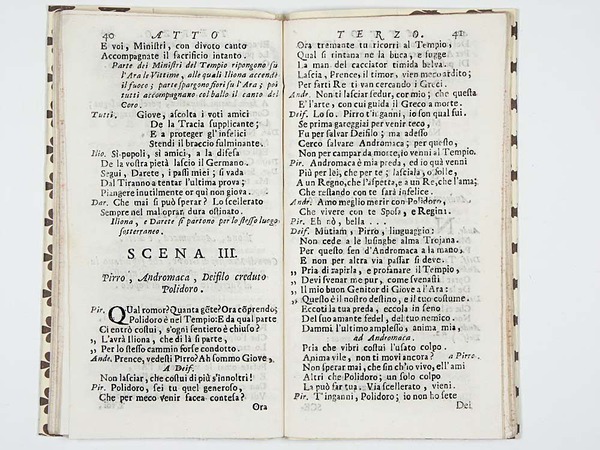 40 ATTO
E voi, Ministri, con divoto canto
Accompagnate il sacrificio intanto.
Parte dei Ministri del Tempio ripongono su
l'Ara le Vittime, alle quali Iliona accende
il fuoco; parte spargono fiori su l'Ara; poi
tutti accompagnano col ballo il canto del
Coro.
Tutti. Giove, ascolta i voti amici
De la Tracia supplicante;
E a proteger gl'infelici
Stendi il braccio fulminante.
Ilio. Sì, popoli, sì amici, a la difesa
De la vostra pietà lascio il Germano.
Segui, Darete, i passi miei; si vada
Dal Tiranno a tentar l'ultima prova;
Piangere inutilmente or quì non giova.
Dar. Che mai si può sperar? Lo scellerato
Sempre nel mal oprar dura ostinato.
Iliona, e Darete si partono per lo stesso luogo
sotterraneo.
SCENA III.
Pirro, Andromaca, Deifilo creduto
Polidoro.
Pir. Qual romor? Quanta gēte? Ora cōprendo;
Polidoro è nel Tempio: E da qual parte
Ci entrò costui, s'ogni sentiero è chiuso?
„ L'avrà Iliona, che di là si parte,
„ Per lo stesso cammin forse condotto.
Andr. Prence, vedesti Pirro? Ah sommo Giove,
A Deif.
Non lasciar, che costui di più s'innoltri!
Pir. Polidoro, sei tu quel generoso,
Che per meco venir facea contesa?
Ora
TERZO. 41
Ora tremante tu ricorri al Tempio,
Qual si rintana ne la buca, e fugge
La man del cacciator timida belva.
Lascia, Prence, il timor, vien meco ardito;
Per farti Re ti van cercando i Greci.
Andr. Non ti lasciar sedur, cor mio; che questa
E' l'arte, con cui guida il Greco a morte.
Deif. Lo so. Pirro t'inganni, io son qual fui.
Se prima gareggiai per venir teco,
Fu per salvar Deifilo; ma adesso
Cerco salvare Andromaca; per questo,
Non per campar da morte, io venni al Tempio.
Pir. Andromaca è mia preda, ed io quà venni
Più per lei, che per te; lasciala, o folle,
A un Regno, che l'aspetta, e a un Re, che l'ama;
Che restando con te sarà infelice.
Andr. Amo meglio morir con Polidoro,
Che vivere con te Sposa, e Regina.
Pir. Eh nò, bella . . .
Deif. Mutiam, Pirro, linguaggio:
Non cede a le lusinghe alma Trojana.
Per questo sen d'Andromaca a la mano,
E non per altra via passar si deve.
„ Pria di rapirla, e profanare il Tempio,
„ Devi svenar me pur, come svenasti
„ Il mio buon Genitor di Giove a l'Ara:
„ Questo è il nostro destino, e il tuo costume.
Eccoti la tua preda, eccola in seno
Del suo amante fedel, del tuo nemico.
Dammi l'ultimo amplesso, anima mia,
ad Andromaca.
Pria che vibri costui l'usato colpo.
Anima vile, non ti movi ancora? a Pirro.
Non sperar mai, che fin ch'io vivo, ell'ami
Altri che Polidoro; un solo colpo
La può far tua. Via scellerato, vieni.
Pir. T'inganni, Polidoro; io non ho sete
Del